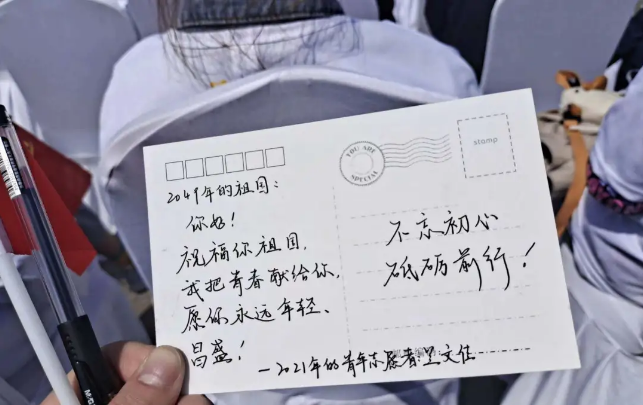 2049年的祖国：
你好！
祝福你祖国，
我把青春献给你，
愿你永远年轻、
昌盛！
YOU ARE
SPECIAL
stamp
不忘初心
砥砺前行！
—2021年的青年志愿者